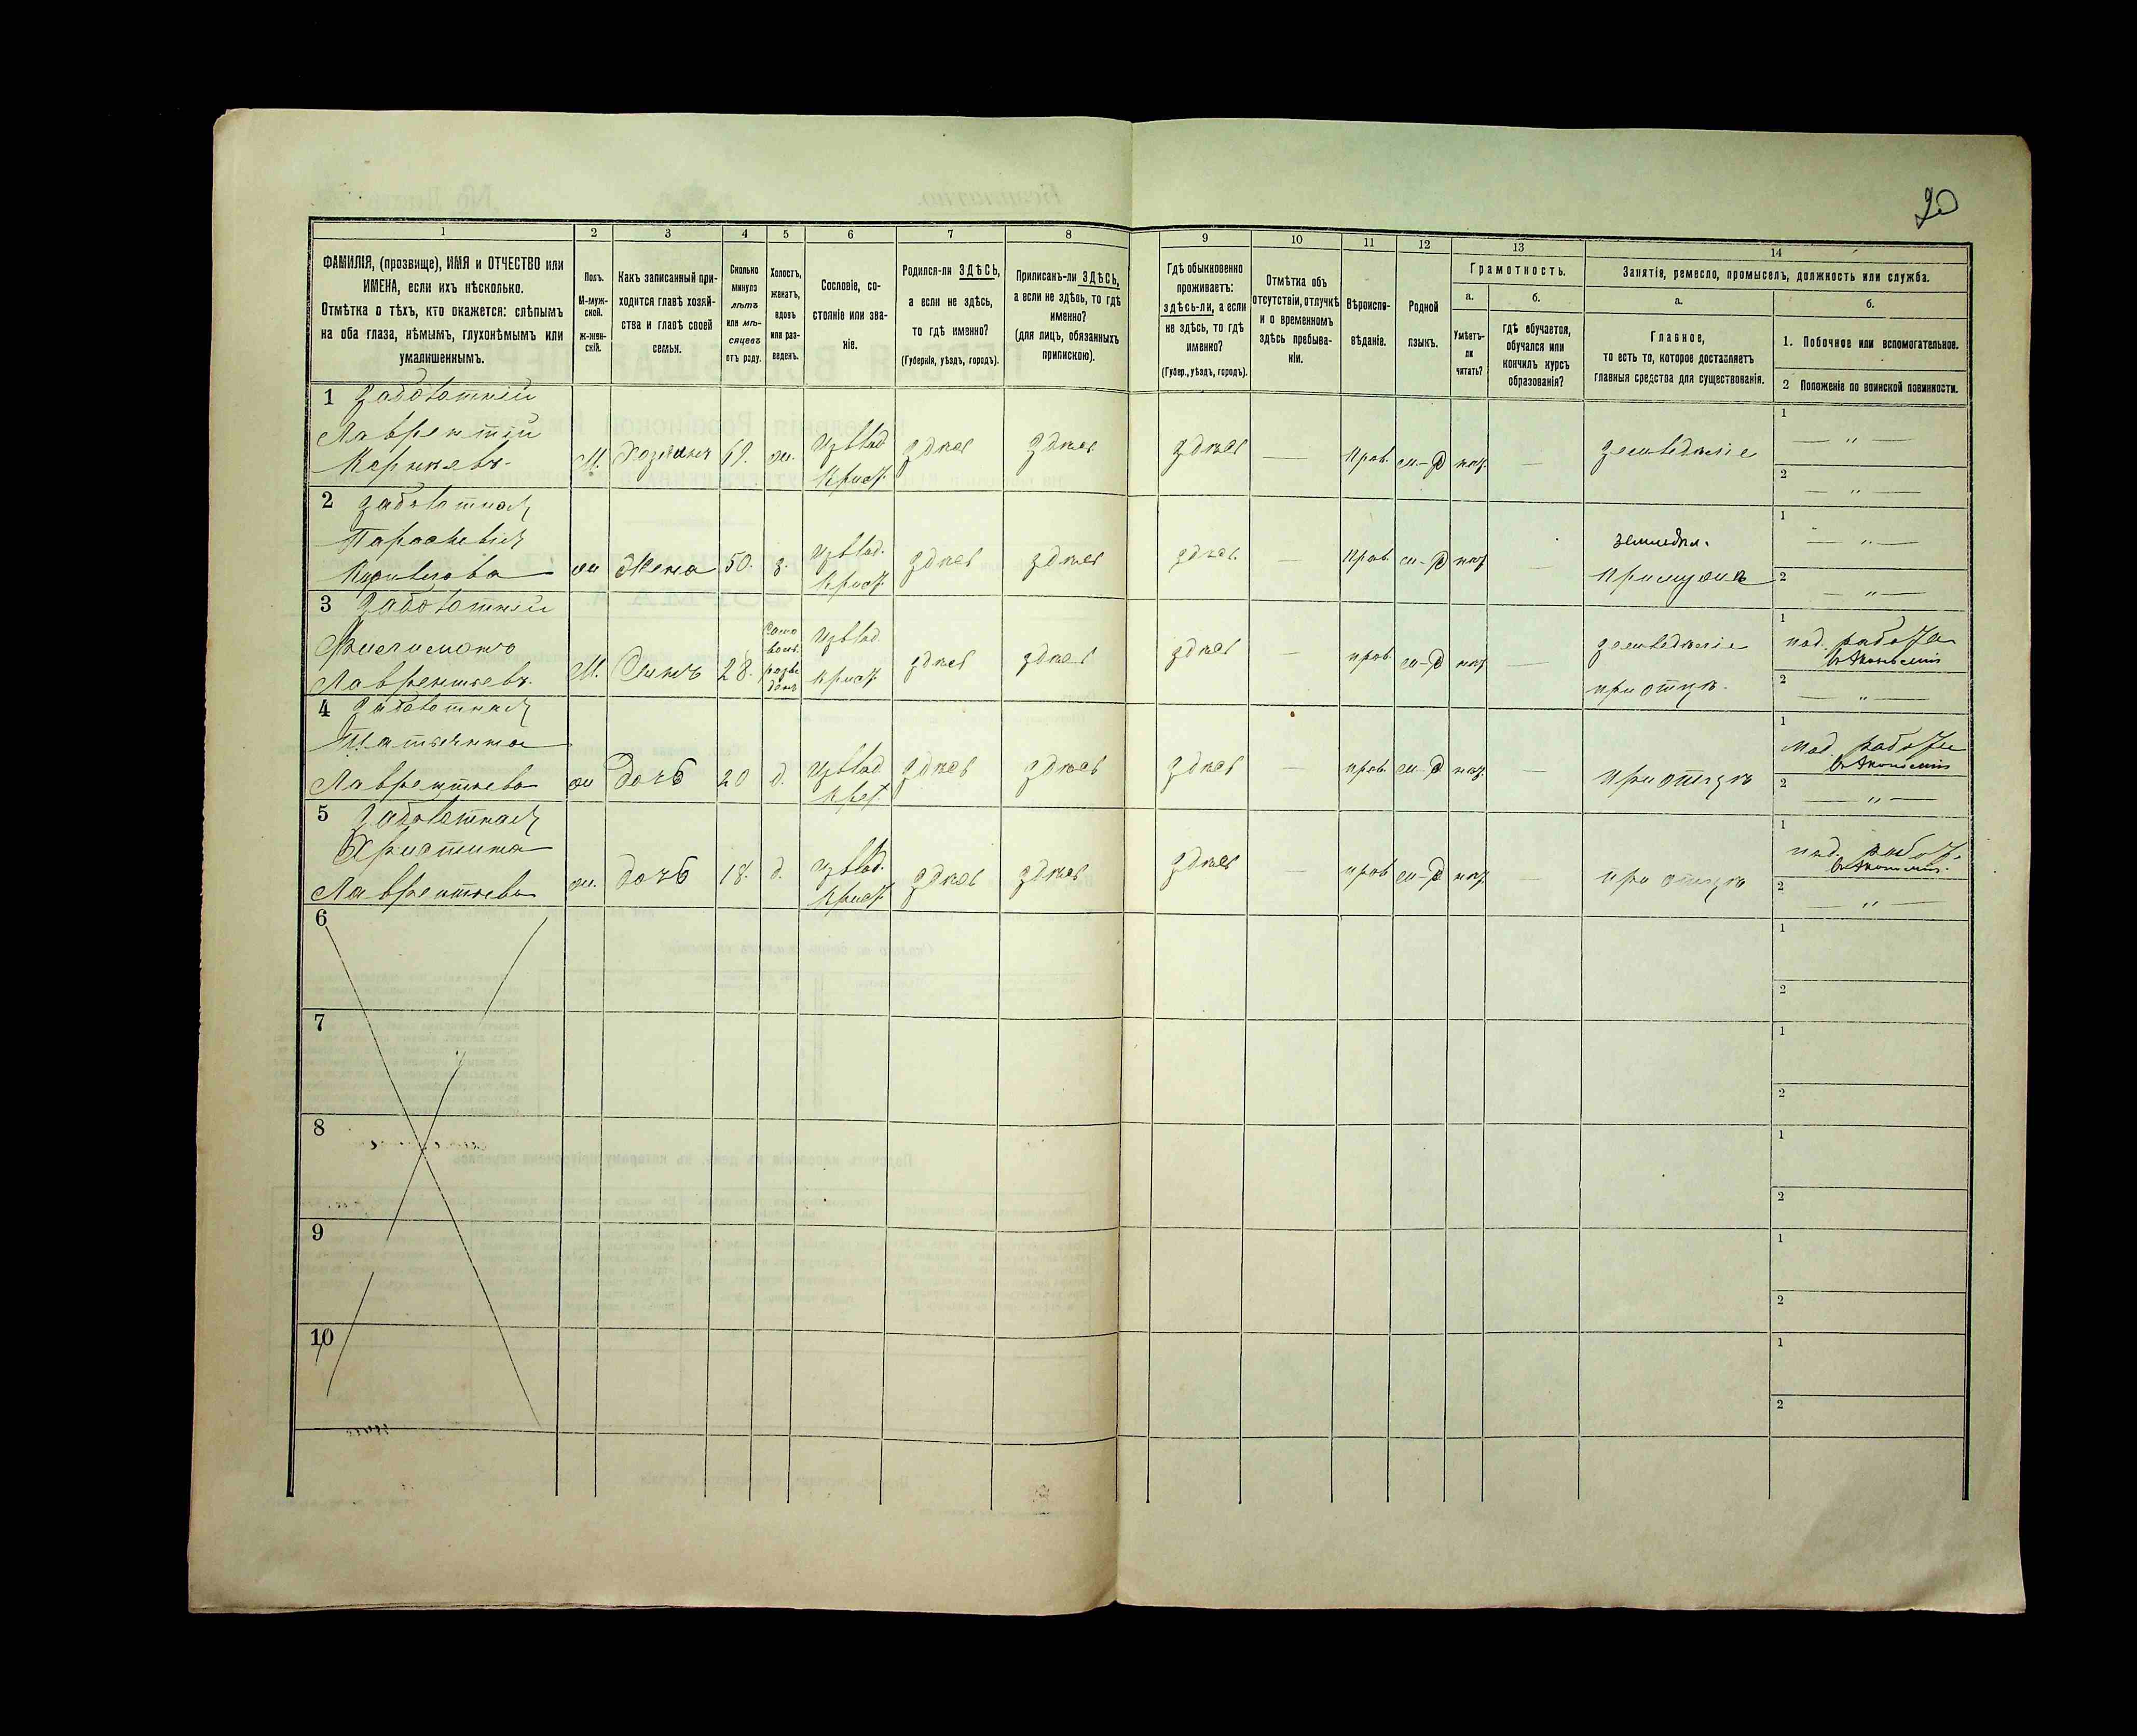 20
1
2
3
4
5
6
7
8
9
10
11
12
13
14
ФАМИЛІЯ, (прозвище), ИМЯ и ОТЧЕСТВО или
ИМЕНА, если ихъ нѣсколько.
Отмѣтка о тѣхъ, кто окажется: слѣпымъ
на оба глаза, нѣмымъ, глухонѣмымъ или
умалишеннымъ.
Полъ.
М-муж-
ской.
ж-жен-
скій.
Какъ записанный при-
ходится главѣ хозяй-
ства и главѣ своей
семьи.
Сколько
минуло
лѣтъ
или мѣ-
сяцевъ
отъ роду.
Холостъ,
женатъ,
вдовъ
или раз-
веденъ.
Сословіе, со-
стояніе или зва-
ніе.
Родился-ли ЗДѢСЬ,
а если не здѣсь,
то гдѣ именно?
(Губернія, уѣздъ, городъ).
Приписанъ-ли ЗДѢСЬ,
а если не здѣсь, то гдѣ
именно?
(для лицъ, обязанныхъ
припискою).
Гдѣ обыкновенно
проживаетъ:
здѣсь-ли, а если
не здѣсь, то гдѣ
именно?
(Губер., уѣздъ, городъ).
Отмѣтка объ
отсутствіи, отлучкѣ
и о временномъ
здѣсь пребыва-
ніи.
Вѣроиспо-
вѣданіе.
Родной
языкъ.
Грамотность.
а.
Умѣетъ-
ли
читать?
б.
гдѣ обучается,
обучался или
кончилъ курсъ
образованія?
Занятія, ремесло, промыселъ, должность или служба.
а.
Главное,
то есть то, которое доставляетъ
главныя средства для существованія.
б.
1. Побочное или вспомогательное.
2 Положеніе по воинской повинности.
1 Заботній
Лаврентій
М. Хозяинъ 69. ж. Изъ влад. крест. здѣсь здѣсь здѣсь — прав. м.-р нѣт. — земледѣліе
1 — " —
2 — " —
2 Заботная
Параскевія
ж Жена 50. з. Изъ влад. крест. здѣсь здѣсь здѣсь — прав. м-р нѣт — земледѣл. при мужѣ
1 — " —
2 — " —
3 Заботній
Филимонъ
Лаврентьевъ. М. Сынъ 28. разве денъ Изъ влад. крест. здѣсь здѣсь здѣсь — прав м-р нѣт — земледѣліе при отцѣ.
1 под. работа въ Экономіи
2 — " —
4 Заботная
Татьяна
Лаврентьева ж дочь 20 д. Изъ влад. крест. здѣсь здѣсь здѣсь — прав. м-р нѣт. — при отцѣ
1 под. работы въ Экономіи
2 — " —
5 Заботная
Христина
Лаврентьева ж. дочь 18. д. Изъ влад. крест. здѣсь здѣсь здѣсь — прав м-р нѣт. — при отцѣ
1 под. работ. въ Экономіи.
2 — " —
6
1
2
7
1
2
8
1
2
9
1
2
10
1
2